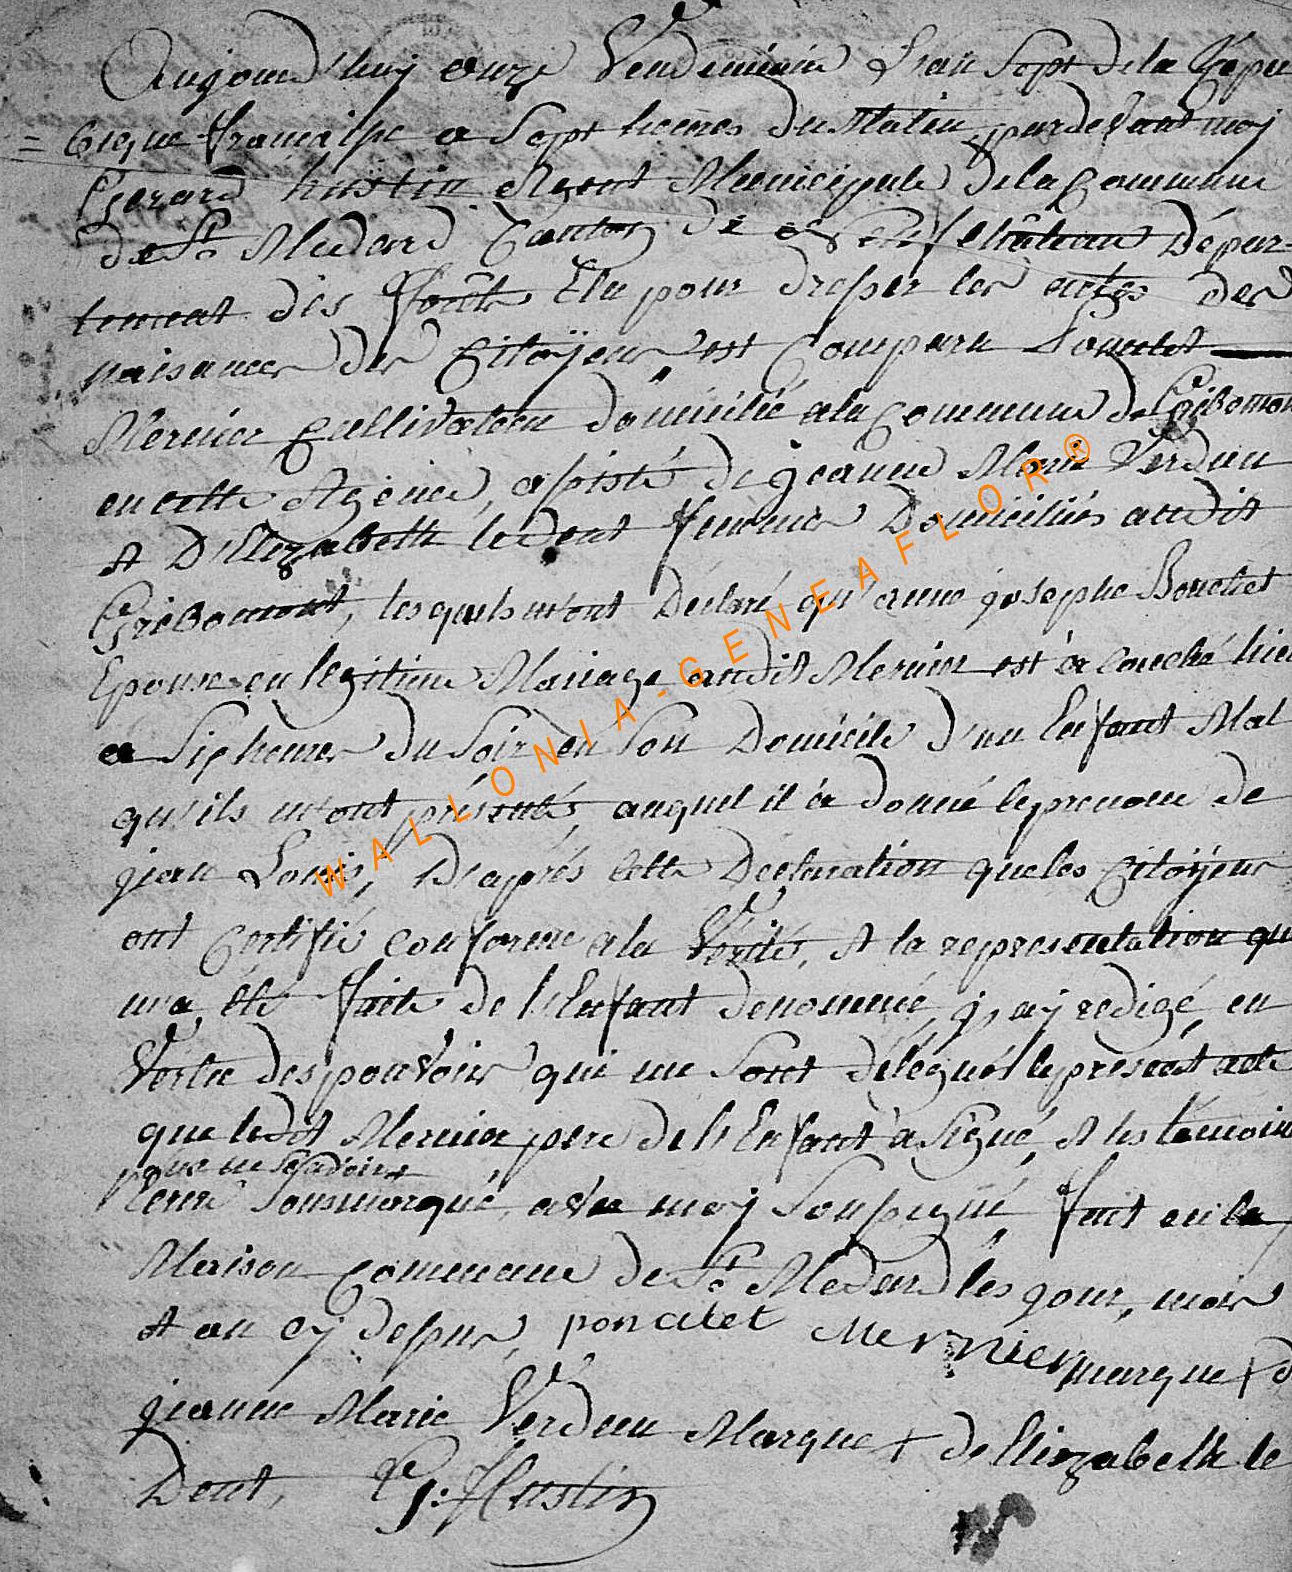 Aujourd'huy onze Vendemiaire L'an Sept de la Repu
= blique francaise a Sept heures du Matin, pardevant moy
Gerard hustin Agent Municipale de la Commune
de St Medard Canton de Neufchâteau Dépar-
tement des forêts Elu pour dresser les actes des
naisances des Citoÿens, est Comparu Poncelet
Mernier Cultivateur domicilié a la Commune de Gribomont
en cette Agence, assisté de jeanne Marie Verdun
et D'Elizabeth le Dent femmes Domiciliés audit
Gribomont, lesquels m'ont Déclaré qu'anne josephe Bouchet
Epouse en legitime Mariage audit Mernier est accouché hier
a Six heures du Soir en Son Domicile d'un Enfant Mal
qu'ils m'ont présentés, auquel il à donné le prenom de
jean Louis, D'aprés cette Declaration que les Citoÿens
ont Certifié conforme a la Vérité, et la representation qui
m'a été faite de l'Enfant denommé, j'ay redigé, en
Vertu des pouvoirs qui me Sont délégués le présent acte
que ledit Mernier pere de l'Enfant à Signé, et les témoins
pour ne Scavoir
Ecrire Sousmarqué, avec moy Soussigné, fait en la
Maison Commune de St Medard les jour, mois
et an cy dessus, poncelet Mernier marque + d
jeanne Marie Verdun Marque + de Elizabeth le
Dent, G: Hustin
WALLONIA-GENEAFLOR®